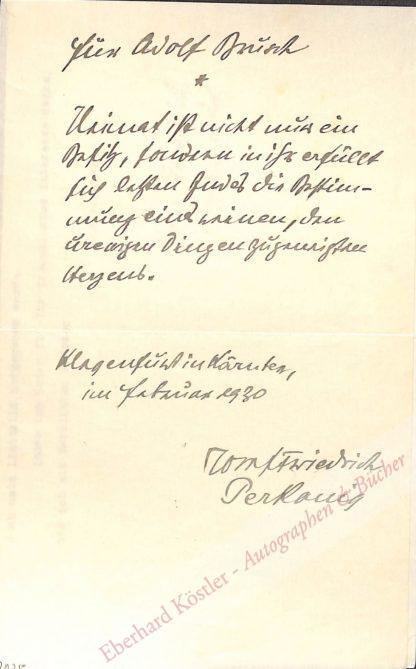 für Adolf Brusch
*
Heimat ist nicht nur ein
Besitz, sondern in ihr erfüllt
sich letzten Endes die Bestim-
mung eines reinen, den
urewigen Dingen zugeneigten
Herzens.
Klagenfurt in Kärnten,
im Februar 1930
Josef Friedrich
Perkonig
Eberhard Köstler - Autographen & Bücher